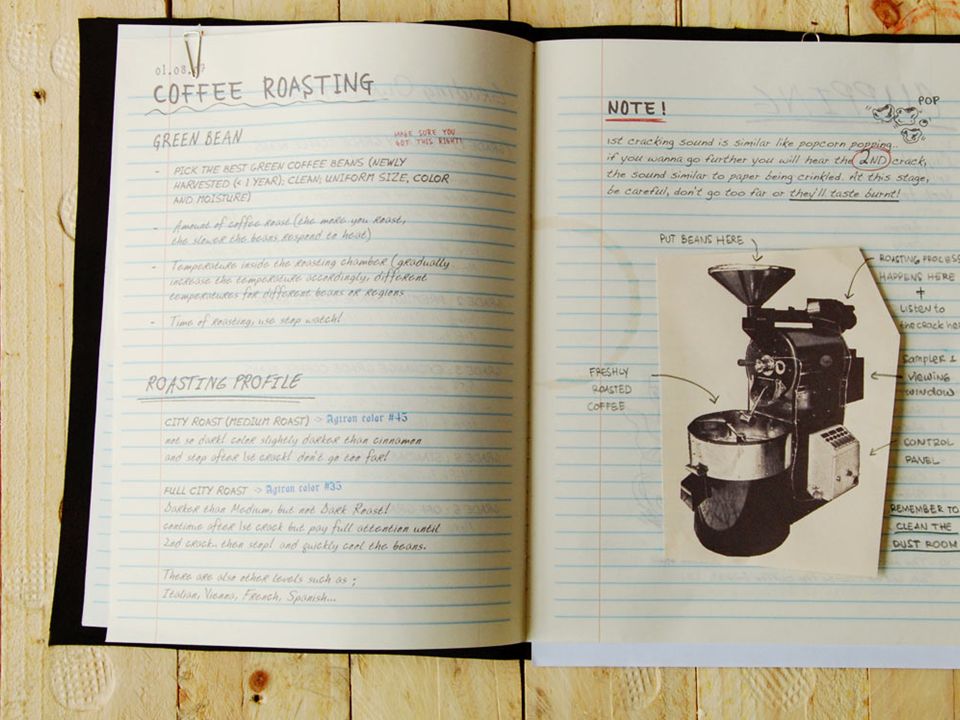 01.08.07
COFFEE ROASTING
GREEN BEAN
MAKE SURE YOU
GOT THIS RIGHT!
- PICK THE BEST GREEN COFFEE BEANS (NEWLY
HARVESTED (< 1 YEAR); CLEAN; UNIFORM SIZE, COLOR
AND MOISTURE)
- Amount of coffee roast (the more you roast,
the slower the beans respond to heat)
- Temperature inside the roasting chamber (gradually
increase the temperature accordingly, different
temperatures for different beans or regions
- Time of roasting, use stop watch!
ROASTING PROFILE
CITY ROAST (MEDIUM ROAST) -> Agtron color #45
not so dark! color slightly darker than cinnamon
and stop after 1st crack! don't go too far!
FULL CITY ROAST -> Agtron color #35
Darker than Medium, but not Dark Roast!
continue after 1st crack but pay full attention until
2nd crack.. then stop! and quickly cool the beans.
There are also other levels such as ;
Italian, Vienna, French, Spanish...
NOTE!
POP
1st cracking sound is similar like popcorn popping..
if you wanna go further you will hear the 2ND crack,
the sound similar to paper being crinkled. At this stage,
be careful, don't go too far or they'll taste burnt!
PUT BEANS HERE
ROASTING PROCESS
HAPPENS HERE
+
Listen to
the crack her
FRESHLY
ROASTED
COFFEE
Sampler &
viewing
window
CONTROL
PANEL
REMEMBER TO
CLEAN THE
DUST ROOM